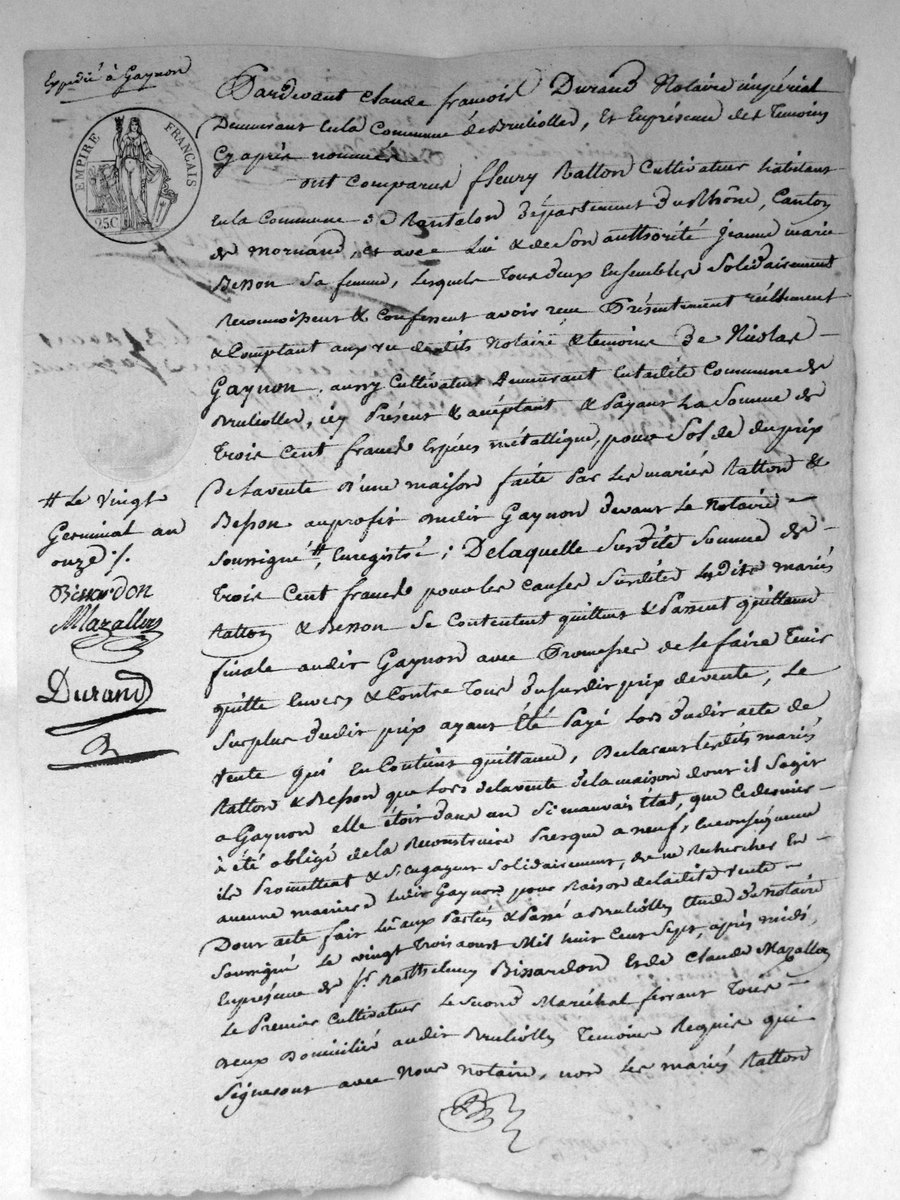 Expedié à Gaynon
EMPIRE FRANÇAIS
25C
Pardevant Claude françois Durand Notaire impérial
Demeurant En la Commune de Brulliolles, Et En présence des Temoins
Cy après nommés
ont comparus fleury Ratton Cultivateur habitant
En la Commune de Rantalon département du Rhône, Canton
de mornand, et avec Lui & de Son authorité jeanne marie
Besson Sa femme, Lesquels Tous deux Ensembles Solidairement
Reconnoissent & Confessent avoir reçu Présentement réellement
& Comptant aux vu desdits Notaire & temoins de Nicolas
Gaynon, aussy Cultivateur Demeurant En ladite Commune de
Brulliolles, icy Présent & acceptant & Payant La Somme de
Trois Cent francs Espèces métallique, pour Solde du prix
De la vente d'une maison faite Par Les mariés Ratton &
Besson au profit dudit Gaynon devant Le Notaire
Soussigné #, Enregistré; De laquelle Susdite Somme de
Trois Cent francs pour les causes Susdites Lesdits mariés
Ratton & Besson Se Contentent quittent & Passent quittance
finale audit Gaynon avec Promesses de le faire Tenir
quitte Envers & Contre Tous du Susdit prix de vente, Le
Surplus dudit prix ayant Été Payé Lors dudit acte de
vente qui En Contient quittance, Déclarant Lesdits mariés
Ratton & Besson que Lors de la vente de la maison dont il S'agit
a Gaynon elle étoit dans un Si mauvais État, que Ce dernier
à été obligé de la Reconstruire Presque a neuf, En conséquence
ils Promettent & S'engagent Solidairement, de ne Rechercher En
aucune maniere Ledit Gaynon pour Raison de ladite vente
Dont acte fait Lû aux Parties & Passé a Brulliolles Etude du Notaire
Soussigné Le vingt Trois aoust Mil huit Cent Sept, après midi,
En présence de Sr. Barthelemy Bissardon Et de Claude Mazallon
Le Premier Cultivateur Le Second Maréchal ferrant Tous
deux Domiciliés audit Brulliolles Temoins Requis qui
Signeront avec Nous notaire, non Les mariés Ratton
# Le vingt
Germinal an
onze /.
Bissardon
Mazallon
Durand